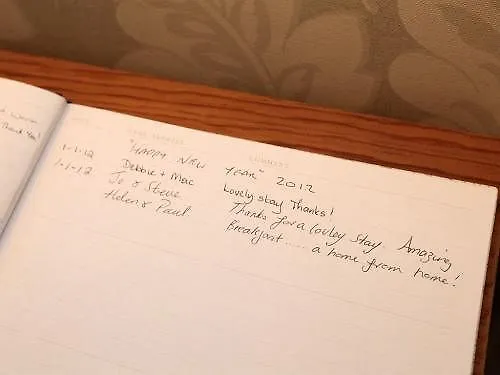 Thank You!
COMMENTS
"HAPPY NEW YEAR" 2012
1-1-12 Debbie + Marc Lovely stay Thanks!
1-1-12 Jo & Steve Thanks for a lovley stay. Amazing
Helen & Paul Breakfast..... a home from home!